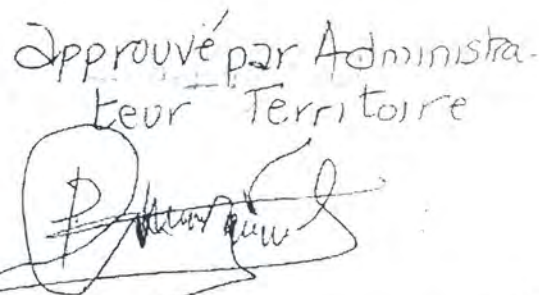 approuvé par Administra-
teur Territoire